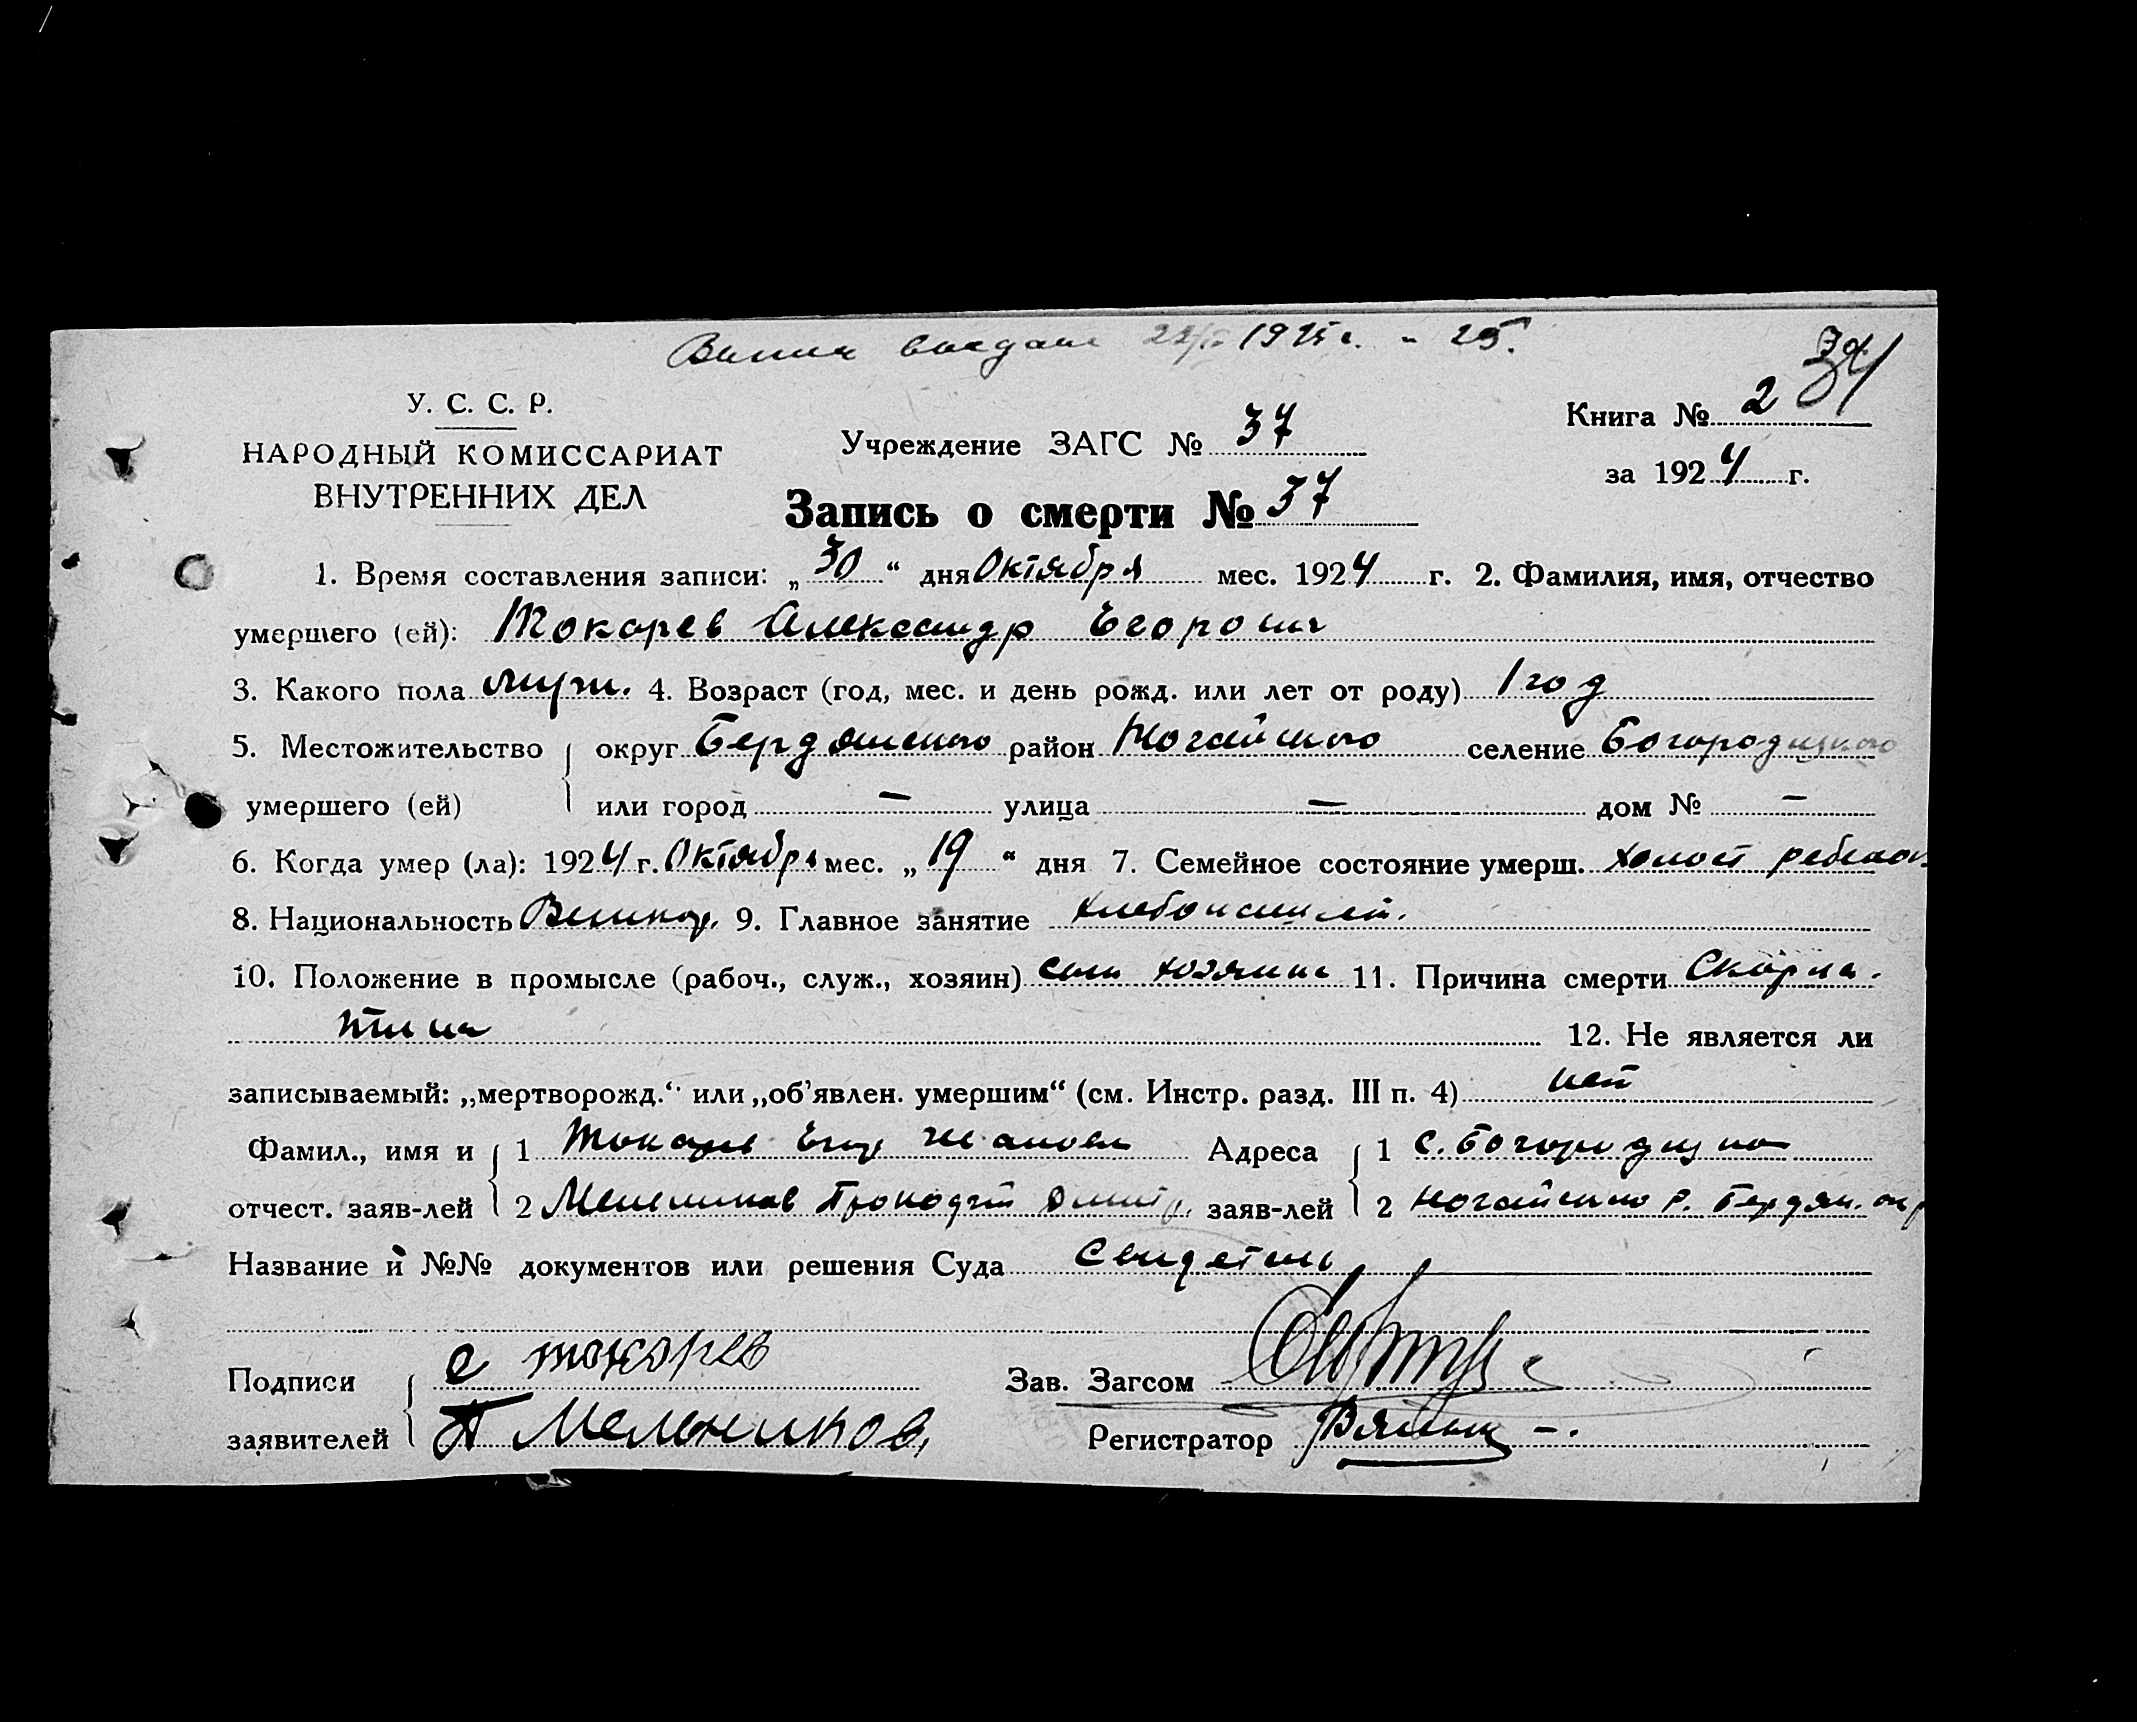 выдана 1925 г. 25.
34
У. С. С. Р.
НАРОДНЫЙ КОМИССАРИАТ
ВНУТРЕННИХ ДЕЛ
Учреждение ЗАГС № 37
Книга № 2
за 1924 г.
Запись о смерти № 37
1. Время составления записи: „30“ дня Октября мес. 1924 г. 2. Фамилия, имя, отчество
умершего (ей): Токарев Александр Егоров
3. Какого пола муж. 4. Возраст (год, мес. и день рожд. или лет от роду) 1 год
5. Местожительство { округ Бердянского район Ногайского селение Богородицкого
умершего (ей) или город — улица — дом № —
6. Когда умер (ла): 1924 г. Октября мес. „19“ дня 7. Семейное состояние умерш. холост ребенок
8. Национальность Великор. 9. Главное занятие хлебопашец
10. Положение в промысле (рабоч., служ., хозяин) сын хозяина 11. Причина смерти Скарла-
тина 12. Не является ли
записываемый: „мертворожд.“ или „об’явлен. умершим“ (см. Инстр. разд. III п. 4) нет
Фамил., имя и { 1 Токарев Егор Иванов Адреса { 1 с. Богородицко
отчест. заяв-лей 2 Мельников Дмитр. заяв-лей 2 Ногайского р. Бердян. окр
Название и №№ документов или решения Суда Свидетель
Подписи { е токорев Зав. Загсом
заявителей П Мельников, Регистратор